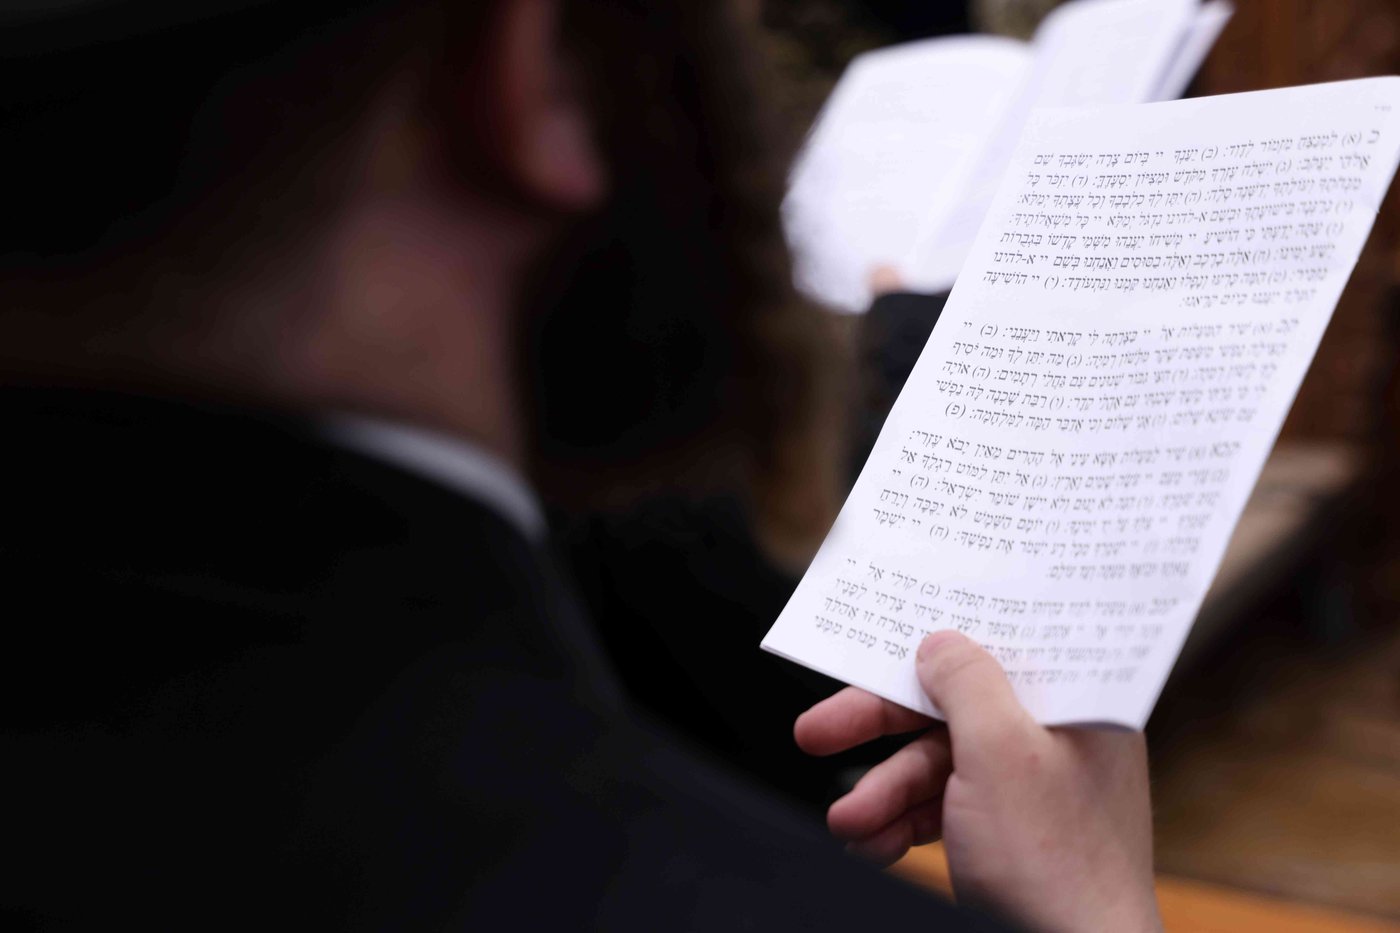 כ (א) לַמְנַצֵּחַ מִזְמוֹר לְדָוִד: (ב) יַעַנְךָ יי בְּיוֹם צָרָה יְשַׂגֶּבְךָ שֵׁם
אֱלֹהֵי יַעֲקֹב: (ג) יִשְׁלַח עֶזְרְךָ מִקֹּדֶשׁ וּמִצִּיּוֹן יִסְעָדֶךָּ: (ד) יִזְכֹּר כָּל
מִנְחֹתֶךָ וְעוֹלָתְךָ יְדַשְּׁנֶה סֶלָה: (ה) יִתֶּן לְךָ כִלְבָבֶךָ וְכָל עֲצָתְךָ יְמַלֵּא:
(ו) נְרַנְּנָה בִּישׁוּעָתֶךָ וּבְשֵׁם א-לֹהֵינוּ נִדְגֹּל יְמַלֵּא יי כָּל מִשְׁאֲלוֹתֶיךָ:
(ז) עַתָּה יָדַעְתִּי כִּי הוֹשִׁיעַ יי מְשִׁיחוֹ יַעֲנֵהוּ מִשְּׁמֵי קָדְשׁוֹ בִּגְבֻרוֹת
יֵשַׁע יְמִינוֹ: (ח) אֵלֶּה בָרֶכֶב וְאֵלֶּה בַסּוּסִים וַאֲנַחְנוּ בְּשֵׁם יי א-לֹהֵינוּ
נַזְכִּיר: (ט) הֵמָּה כָּרְעוּ וְנָפָלוּ וַאֲנַחְנוּ קַּמְנוּ וַנִּתְעוֹדָד: (י) יי הוֹשִׁיעָה
הַמֶּלֶךְ יַעֲנֵנוּ בְיוֹם קָרְאֵנוּ:
קכ (א) שִׁיר הַמַּעֲלוֹת אֶל יי בַּצָּרָתָה לִּי קָרָאתִי וַיַּעֲנֵנִי: (ב) יי
הַצִּילָה נַפְשִׁי מִשְּׂפַת שֶׁקֶר מִלָּשׁוֹן רְמִיָּה: (ג) מַה יִּתֵּן לְךָ וּמַה יֹּסִיף
לָךְ לָשׁוֹן רְמִיָּה: (ד) חִצֵּי גִבּוֹר שְׁנוּנִים עִם גַּחֲלֵי רְתָמִים: (ה) אוֹיָה
לִי כִּי גַרְתִּי מֶשֶׁךְ שָׁכַנְתִּי עִם אָהֳלֵי קֵדָר: (ו) רַבַּת שָׁכְנָה לָּהּ נַפְשִׁי
עִם שׂוֹנֵא שָׁלוֹם: (ז) אֲנִי שָׁלוֹם וְכִי אֲדַבֵּר הֵמָּה לַמִּלְחָמָה: (פ)
קכא (א) שִׁיר לַמַּעֲלוֹת אֶשָּׂא עֵינַי אֶל הֶהָרִים מֵאַיִן יָבֹא עֶזְרִי:
(ב) עֶזְרִי מֵעִם יי עֹשֵׂה שָׁמַיִם וָאָרֶץ: (ג) אַל יִתֵּן לַמּוֹט רַגְלֶךָ אַל
יָנוּם שֹׁמְרֶךָ: (ד) הִנֵּה לֹא יָנוּם וְלֹא יִישָׁן שׁוֹמֵר יִשְׂרָאֵל: (ה) יי
שֹׁמְרֶךָ יי צִלְּךָ עַל יַד יְמִינֶךָ: (ו) יוֹמָם הַשֶּׁמֶשׁ לֹא יַכֶּכָּה וְיָרֵחַ
בַּלָּיְלָה: (ז) יי יִשְׁמָרְךָ מִכָּל רָע יִשְׁמֹר אֶת נַפְשֶׁךָ: (ח) יי יִשְׁמָר
צֵאתְךָ וּבוֹאֶךָ מֵעַתָּה וְעַד עוֹלָם:
קמב (א) מַשְׂכִּיל לְדָוִד בִּהְיוֹתוֹ בַמְּעָרָה תְפִלָּה: (ב) קוֹלִי אֶל יי
אֶזְעָק קוֹלִי אֶל יי אֶתְחַנָּן: (ג) אֶשְׁפֹּךְ לְפָנָיו שִׂיחִי צָרָתִי לְפָנָיו
אַגִּיד: (ד) בְּהִתְעַטֵּף עָלַי רוּחִי וְאַתָּה בְּאֹרַח זוּ אֲהַלֵּךְ
אָבַד מָנוֹס מִמֶּנִּי